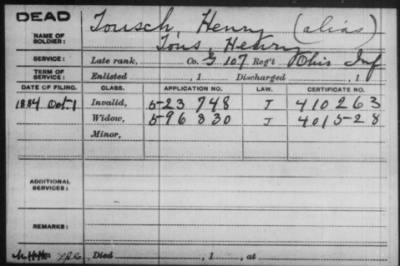 DEAD
NAME OF SOLDIER: Tousch, Henry (alias)
Tous, Henry
SERVICE: Late rank, Co. G 107 Reg't Ohio Inf
TERM OF SERVICE: Enlisted , 1 Discharged , 1
DATE OF FILING. CLASS. APPLICATION NO. LAW. CERTIFICATE NO.
1884 Oct-1 Invalid, 523 748 J 410 263
Widow, 596 330 J 401528
Minor,
ADDITIONAL SERVICES:
REMARKS:
Died , 1 , at